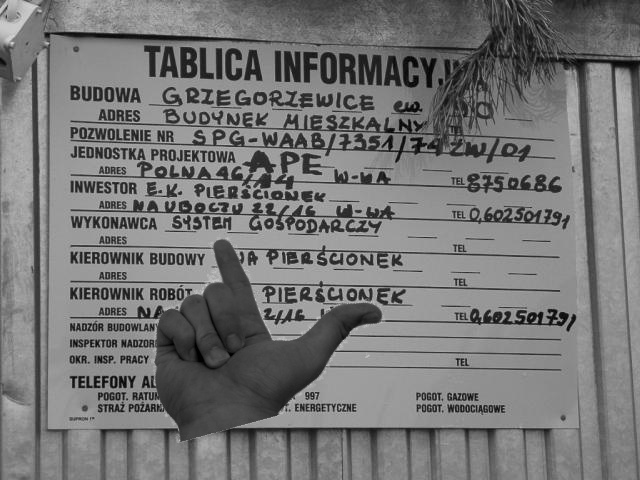 TABLICA INFORMACYJN
BUDOWA GRZEGORZEWICE ew.
ADRES BUDYNEK MIESZKALNY
POZWOLENIE NR SPG-WAAB/7351/74 ZW/01
JEDNOSTKA PROJEKTOWA APE
ADRES POLNA 46/14 W-WA TEL 8750686
INWESTOR E.K. PIERŚCIONEK
ADRES NA UBOCZU 22/16 W-WA TEL 0,602501791
WYKONAWCA SYSTEM GOSPODARCZY
ADRES TEL
KIEROWNIK BUDOWY PIERŚCIONEK
ADRES TEL
KIEROWNIK ROBÓT PIERŚCIONEK
ADRES NA 2/16 TEL 0,602501791
NADZÓR BUDOWLANY
INSPEKTOR NADZORU
OKR. INSP. PRACY TEL
TELEFONY
POGOT. RATUN 997 POGOT. GAZOWE
STRAŻ POŻARN T. ENERGETYCZNE POGOT. WODOCIĄGOWE
SUPRON 1